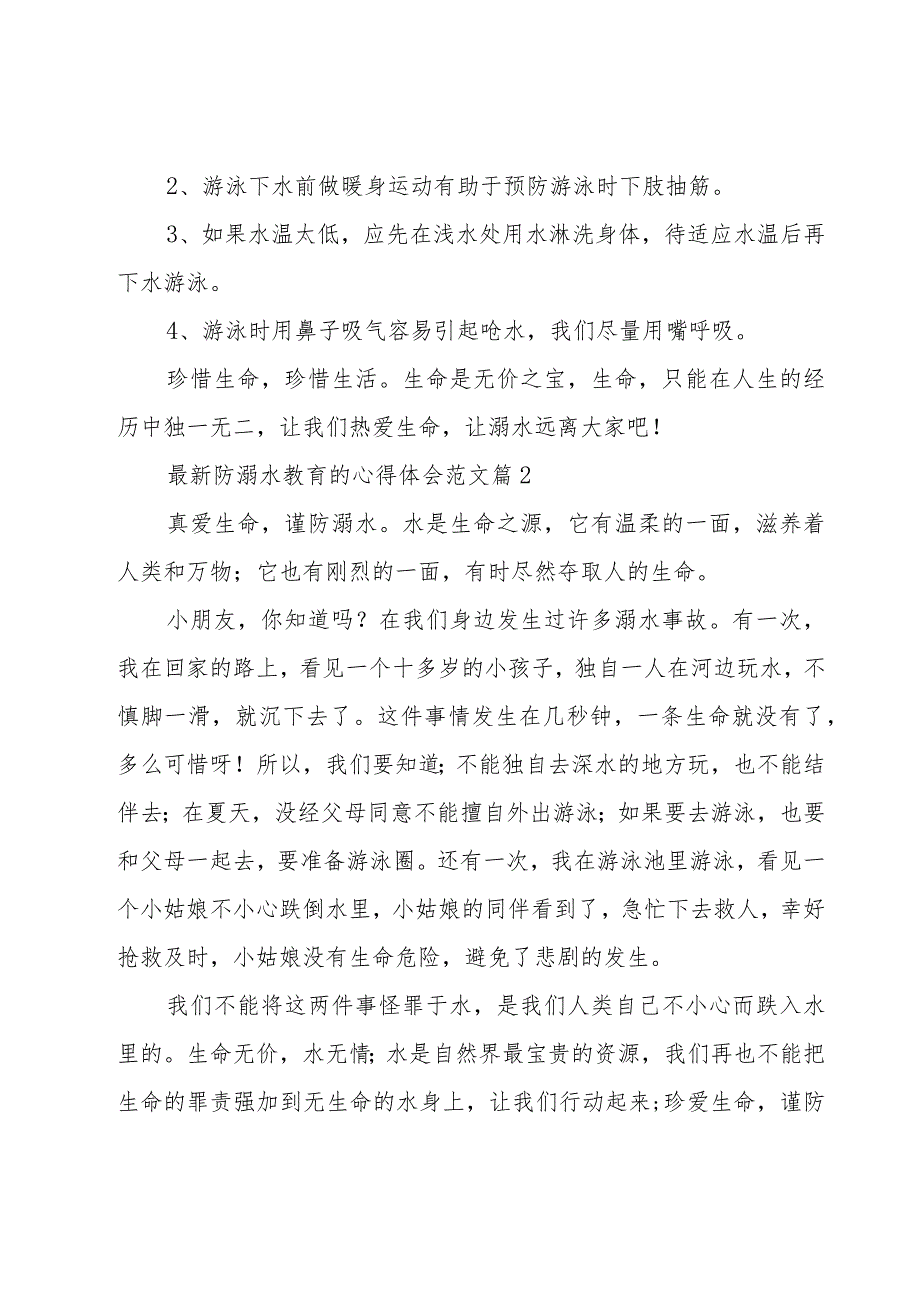 2、游泳下水前做暖身运动有助于预防游泳时下肢抽筋。
3、如果水温太低，应先在浅水处用水淋洗身体，待适应水温后再
下水游泳。
4、游泳时用鼻子吸气容易引起呛水，我们尽量用嘴呼吸。
珍惜生命，珍惜生活。生命是无价之宝，生命，只能在人生的经
历中独一无二，让我们热爱生命，让溺水远离大家吧！
最新防溺水教育的心得体会范文篇2
真爱生命，谨防溺水。水是生命之源，它有温柔的一面，滋养着
人类和万物；它也有刚烈的一面，有时尽然夺取人的生命。
小朋友，你知道吗？在我们身边发生过许多溺水事故。有一次，
我在回家的路上，看见一个十多岁的小孩子，独自一人在河边玩水，不
慎脚一滑，就沉下去了。这件事情发生在几秒钟，一条生命就没有了，
多么可惜呀！所以，我们要知道；不能独自去深水的地方玩，也不能结
伴去；在夏天，没经父母同意不能擅自外出游泳；如果要去游泳，也要
和父母一起去，要准备游泳圈。还有一次，我在游泳池里游泳，看见一
个小姑娘不小心跌倒水里，小姑娘的同伴看到了，急忙下去救人，幸好
抢救及时，小姑娘没有生命危险，避免了悲剧的发生。
我们不能将这两件事怪罪于水，是我们人类自己不小心而跌入水
里的。生命无价，水无情；水是自然界最宝贵的资源，我们再也不能把
生命的罪责强加到无生命的水身上，让我们行动起来;珍爱生命，谨防